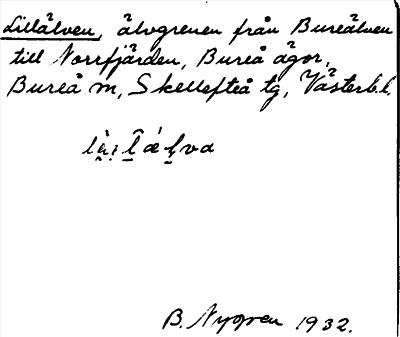 Lillälven, älvgrenen från Bureälven
till Norrfjärden, Bureå ägor,
Bureå m, Skellefteå tg, Västerb.l.
B. Nygren 1932.